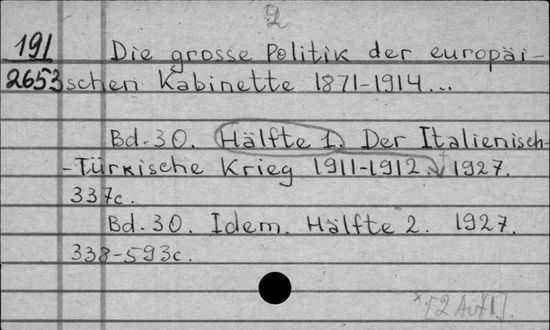 2
191 Die grosse Politik der europäi-
2653 schen Kabinette 1871-1914...
Bd. 30. Hälfte 1. Der Italienisch-
-Türkische Krieg 1911-1912. 1927.
337c.
Bd. 30. Idem. Hälfte 2. 1927.
338-593c.
*[2 Aufl.].